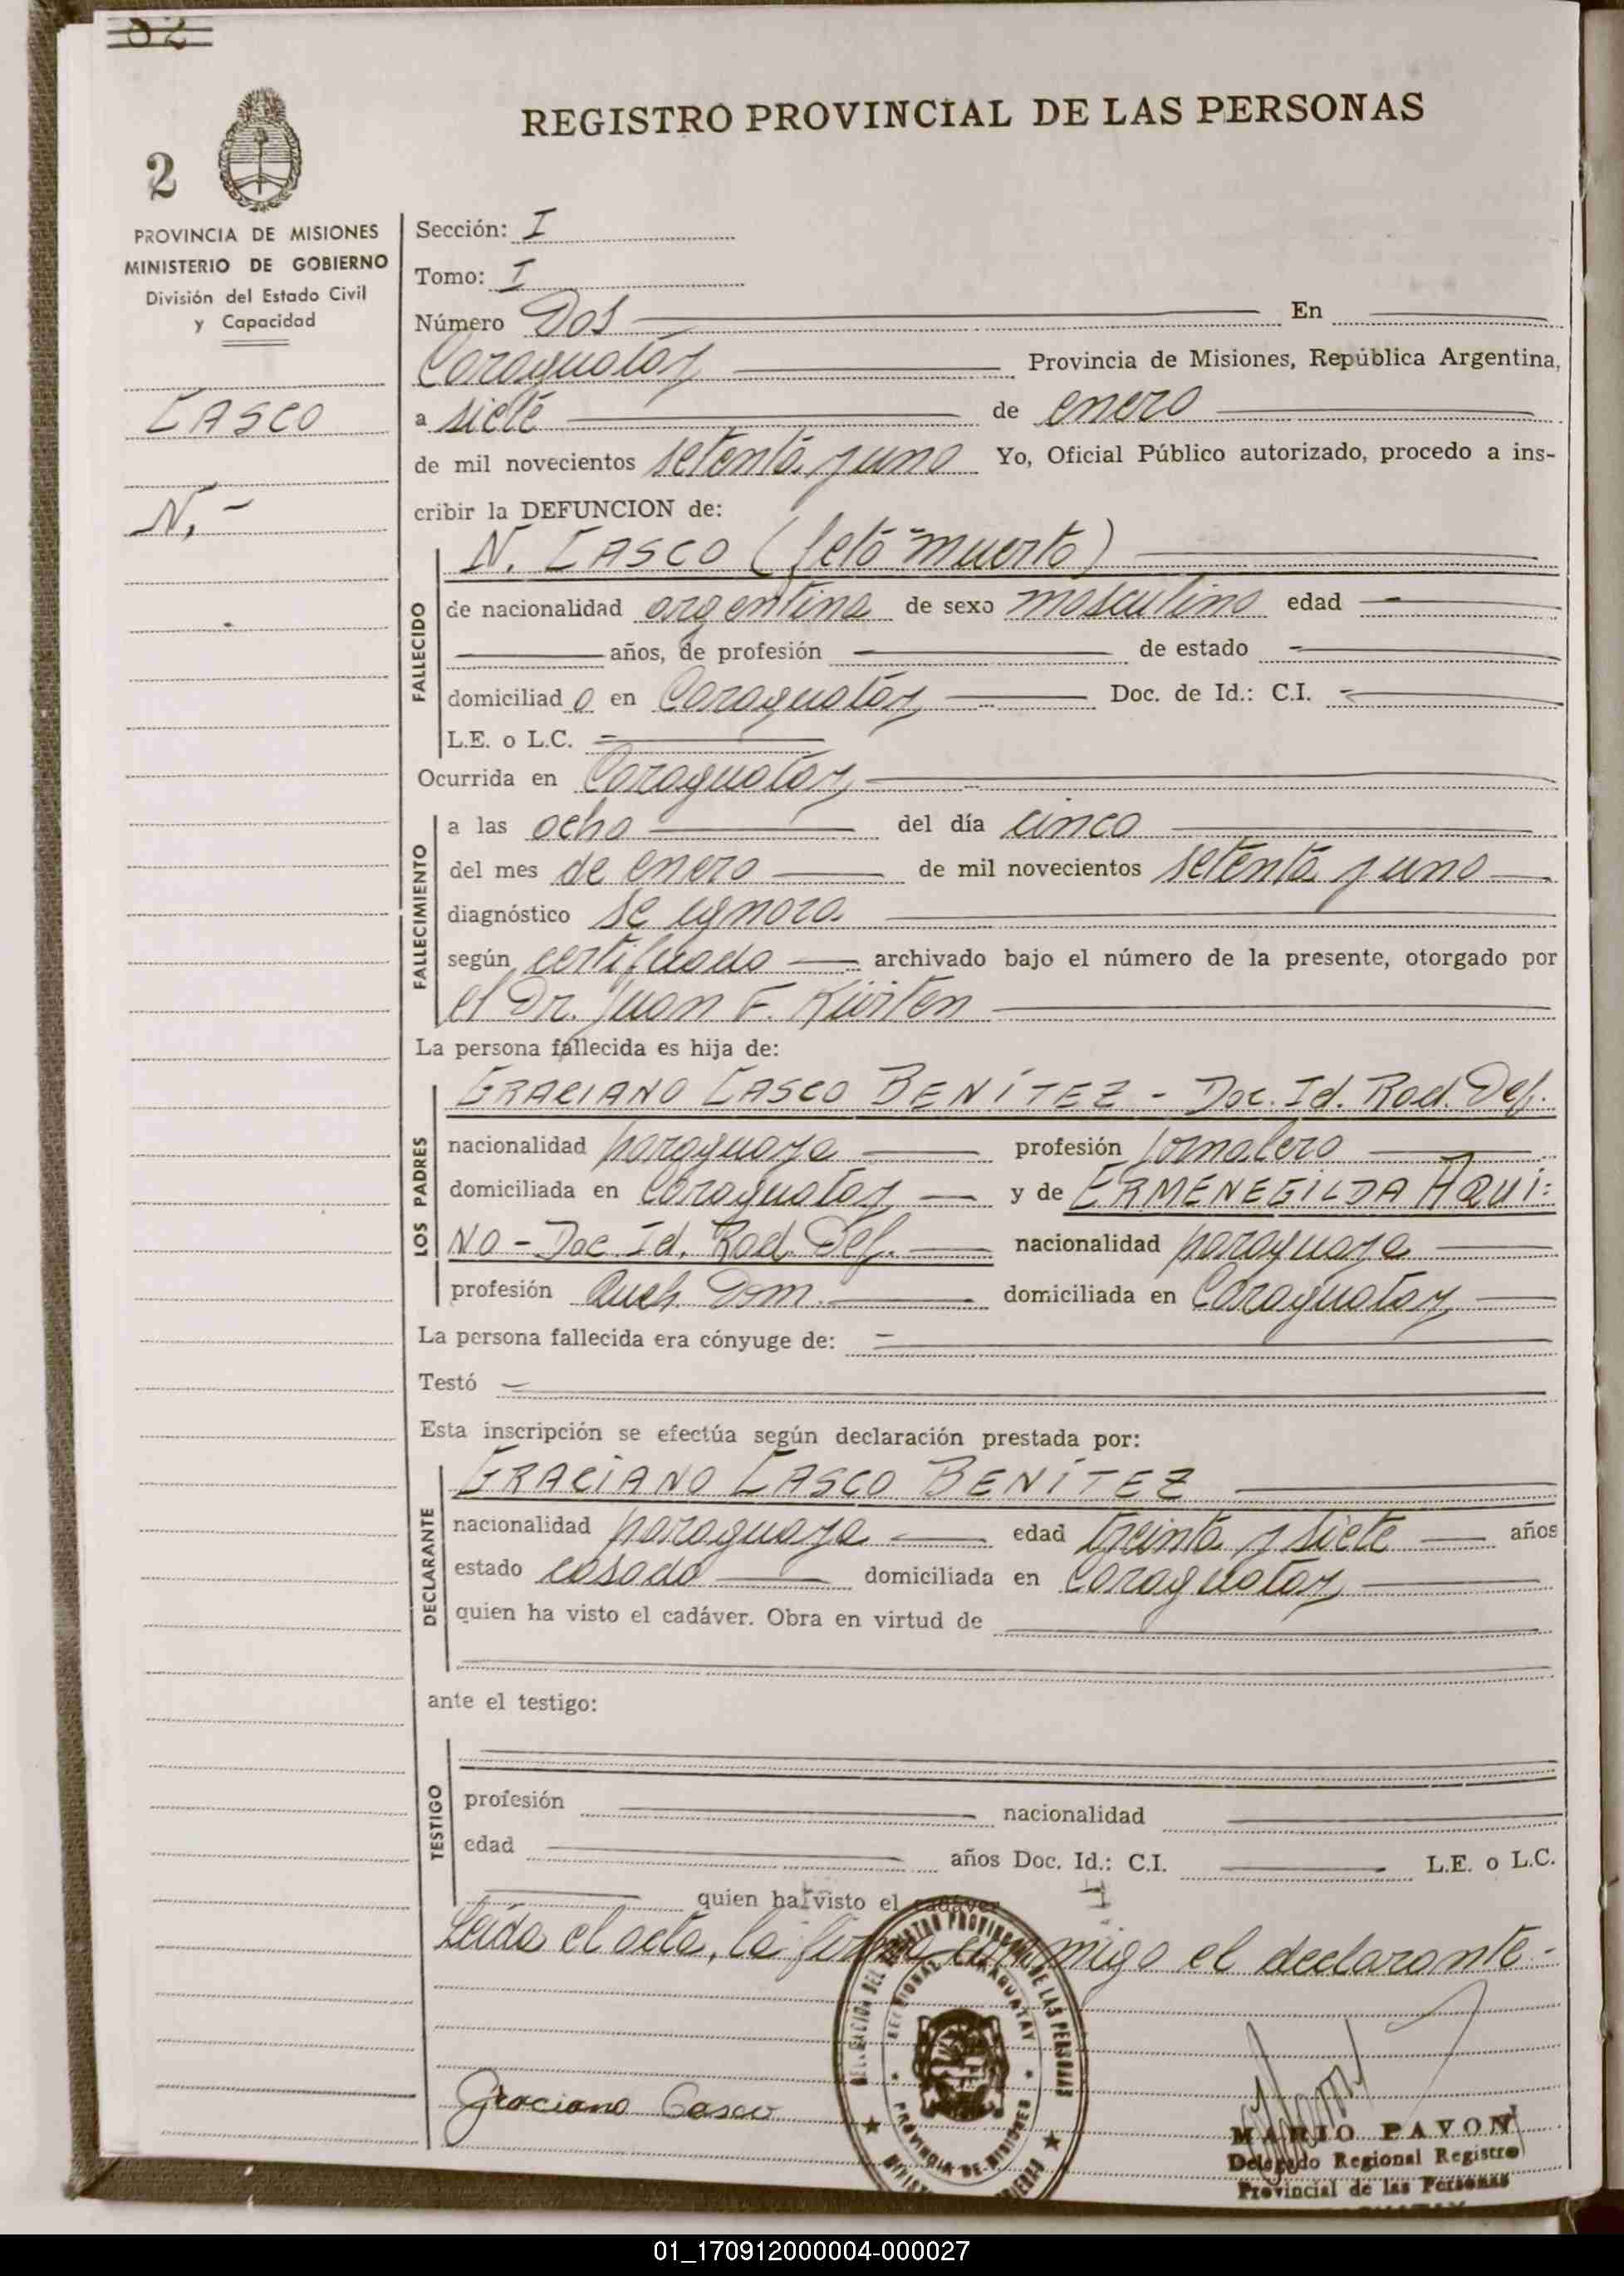 82
REGISTRO PROVINCIAL DE LAS PERSONAS
2
PROVINCIA DE MISIONES
MINISTERIO DE GOBIERNO
División del Estado Civil
y Capacidad
CASCO
N.-
Sección: I
Tomo: I
Número Dos En
Caraguatay Provincia de Misiones, República Argentina,
a siete de enero
de mil novecientos setenta y uno Yo, Oficial Público autorizado, procedo a ins-
cribir la DEFUNCION de:
N. CASCO (feto muerto)
FALLECIDO
de nacionalidad argentina de sexo masculino edad
años, de profesión de estado
domiciliad o en Caraguatay Doc. de Id.: C.I.
L.E. o L.C.
Ocurrida en Caraguatay
FALLECIMIENTO
a las ocho del día cinco
del mes de enero de mil novecientos setenta y uno
diagnóstico se ignora
según certificado archivado bajo el número de la presente, otorgado por
el Dr. Juan F. Kürten
La persona fallecida es hija de:
LOS PADRES
GRACIANO CASCO BENÍTEZ - Doc. Id. Rad. Def.
nacionalidad paraguaya profesión jornalero
domiciliada en Caraguatay y de ERMENEGILDA AQUI=
NO - Doc. Id. Rad. Def. nacionalidad paraguaya
profesión Queh. Dom. domiciliada en Caraguatay
La persona fallecida era cónyuge de:
Testó
Esta inscripción se efectúa según declaración prestada por:
DECLARANTE
GRACIANO CASCO BENÍTEZ
nacionalidad paraguaya edad treinta y siete años
estado casado domiciliada en Caraguatay
quien ha visto el cadáver. Obra en virtud de
ante el testigo:
TESTIGO
profesión nacionalidad
edad años Doc. Id.: C.I. L.E. o L.C.
quien ha visto el cadáver
Leída el acta, la firma conmigo el declarante.-
DELEGACION DEL REGISTRO PROVINCIAL DE LAS PERSONAS
REGIONAL CARAGUATAY
PROVINCIA DE MISIONES
Graciano Casco
MARIO PAVON
Delegado Regional Registro
Provincial de las Personas
01_170912000004-000027